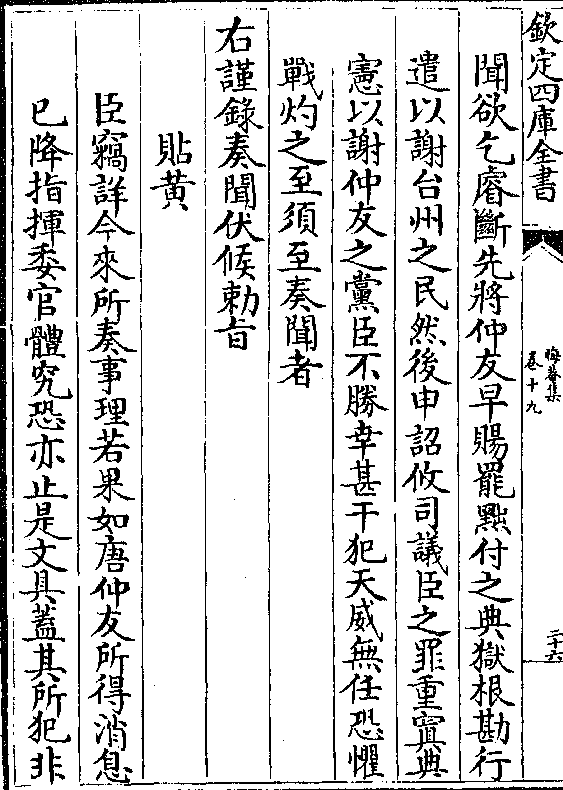 欽定四庫全書
晦菴集
卷十九
二十六
聞欲乞睿斷先將仲友早賜罷黜付之典獄根勘行
遣以謝台州之民然後申詔攸司議臣之罪重寘典
憲以謝仲友之黨臣不勝幸甚干犯天威無任恐懼
戰灼之至須至奏聞者
右謹錄奏聞伏候勅旨
貼黄
臣竊詳今來所奏事理若果如唐仲友所得消息
已降指揮委官體究恐亦止是文具蓋其所犯非